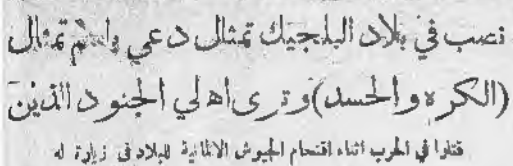 نصب في بلاد البلجيك تمثال دعي باسم تمثال
(الكره والحسد) وترى اهلي الجنود الذين
قتلوا في الحرب اثناء اقتحام الجيوش الالمانية للبلاد في زيارة له